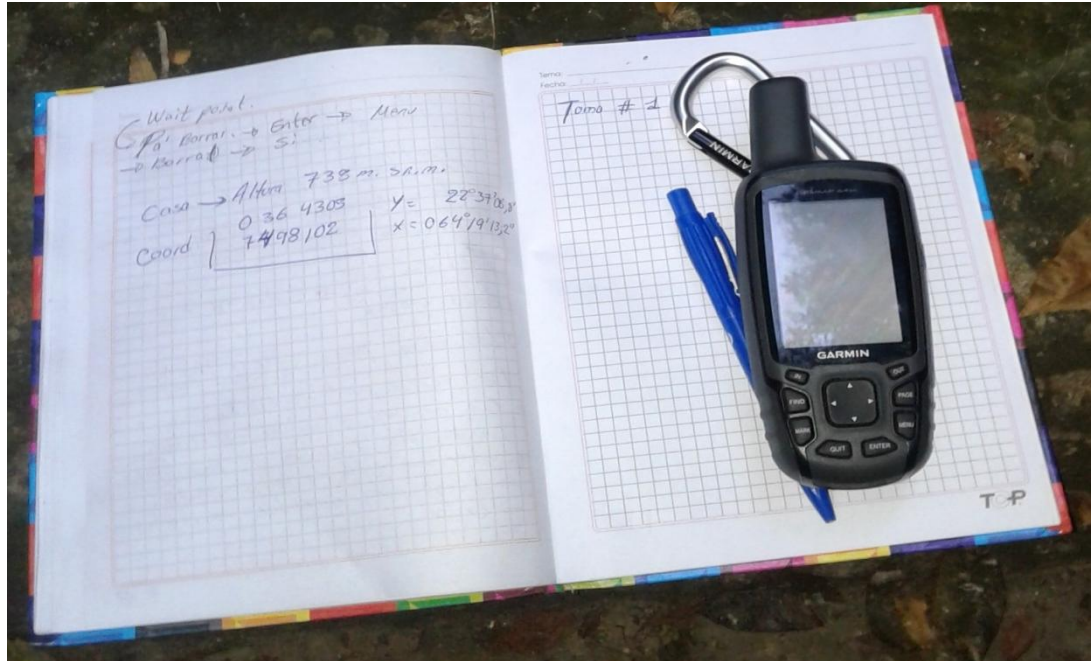 Wait point.
Pa' Borrar. → Enter → Menu
→ Borrar → Si
Casa → Altura 738 m. s.n.m.
Coord
036 4305
7498102
Y= 22°37'06,8"
X= 064°19'13,2"
Tema:
Fecha:
Toma # 1
GARMIN
GARMIN
IN
OUT
FIND
PAGE
MARK
MENU
QUIT
ENTER
TOP